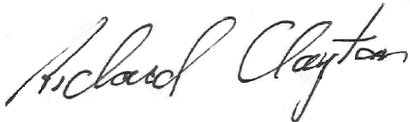 Richard Clayton